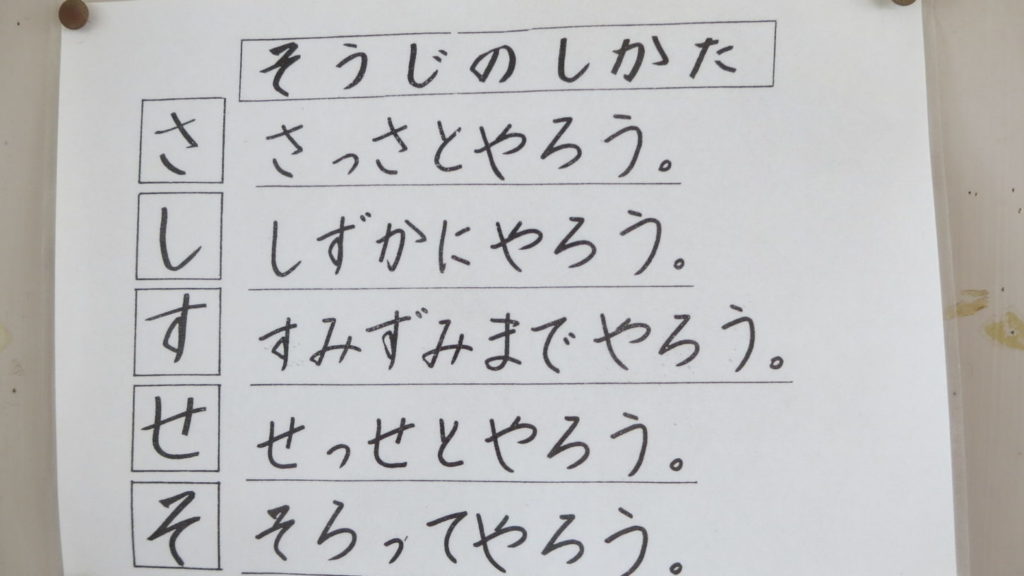 そうじのしかた
さ さっさとやろう。
し しずかにやろう。
す すみずみまでやろう。
せ せっせとやろう。
そ そろってやろう。